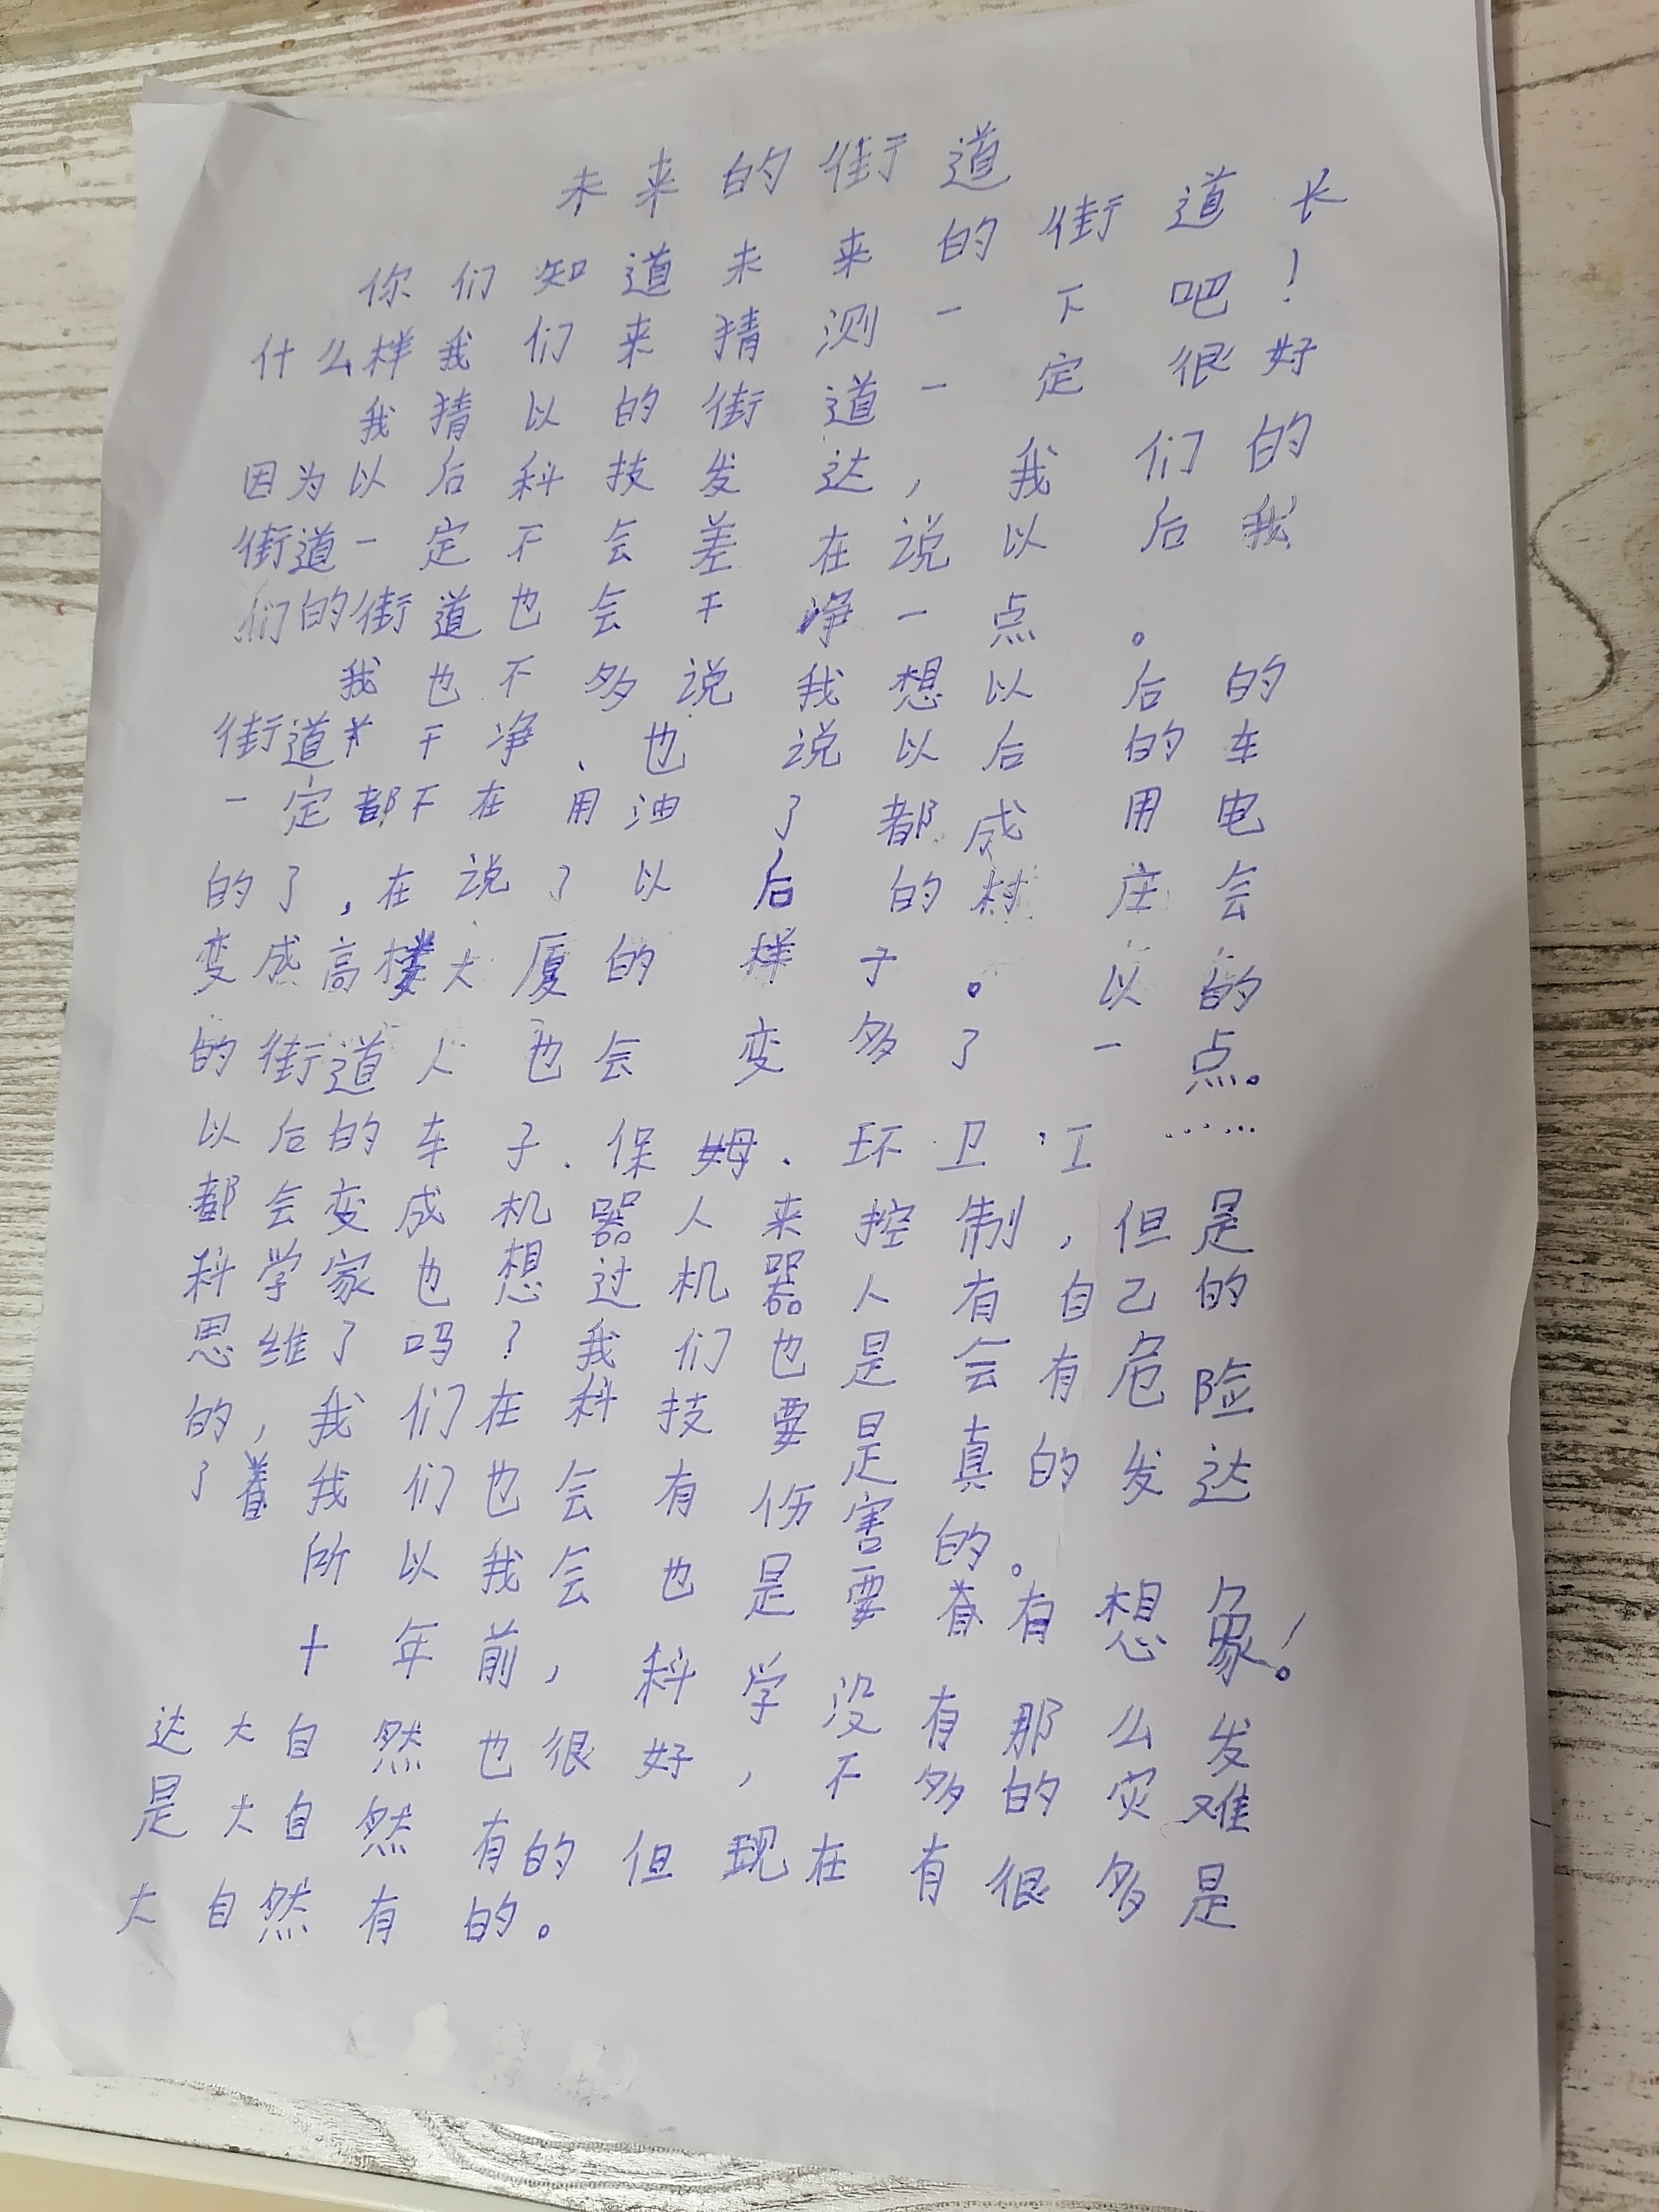 未来的街道
你们知道未来的街道长
什么样我们来猜测一下吧!
我猜以的街道一定很好
因为以后科技发达,我们的
街道一定不会差在说以后我
们的街道也会干净一点。
我也不多说我想以后的
街道干净、也说以后的车
一定都不在用油了都成用电
的了,在说了以后的村庄会
变成高楼大厦的样子。以的
的街道人也会变多了一点。
以后的车子、保姆、环卫工……
都会变成机器人来控制,但是
科学家也想过机器人有自己的
思维了吗?我们也是会有危险
的,我们在科技要是真的发达
了着我们也会有伤害的。
所以我会也是要有想象!
十年前,科学没有那么发
达大自然也很好,不多的灾难
是大自然有的但现在有很多是
大自然有的。